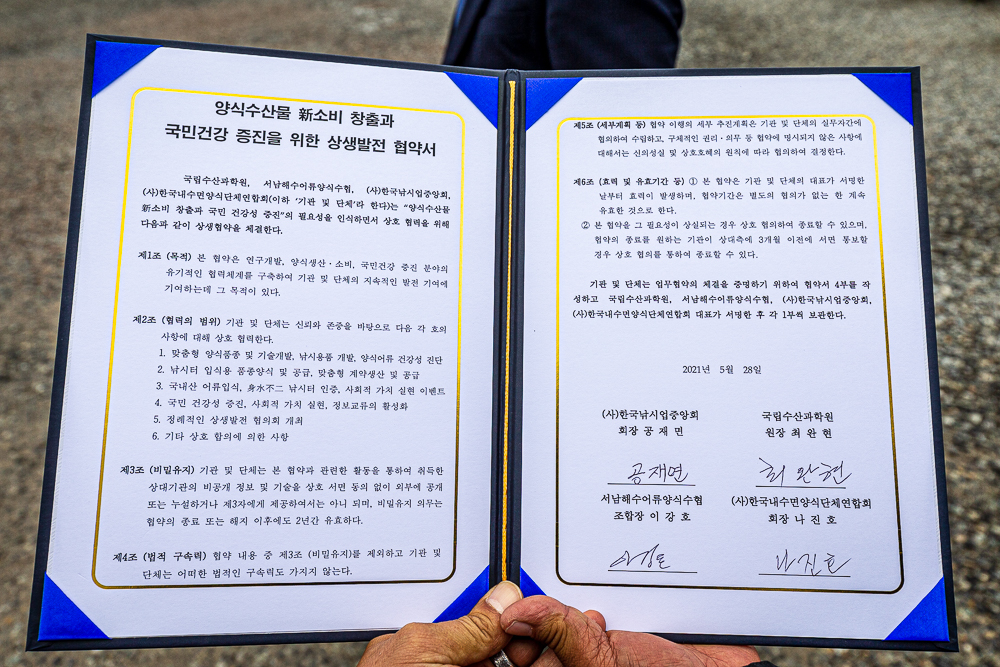 양식수산물 新소비 창출과
국민건강 증진을 위한 상생발전 협약서
국립수산과학원, 서남해수어류양식수협, (사)한국낚시업중앙회,
(사)한국내수면양식단체연합회(이하 '기관 및 단체'라 한다)는 "양식수산물
新소비 창출과 국민 건강성 증진"의 필요성을 인식하면서 상호 협력을 위해
다음과 같이 상생협약을 체결한다.
제1조 (목적) 본 협약은 연구개발, 양식생산·소비, 국민건강 증진 분야의
유기적인 협력체계를 구축하여 기관 및 단체의 지속적인 발전 기여에
기여하는데 그 목적이 있다.
제2조 (협력의 범위) 기관 및 단체는 신뢰와 존중을 바탕으로 다음 각 호의
사항에 대해 상호 협력한다.
1. 맞춤형 양식품종 및 기술개발, 낚시용품 개발, 양식어류 건강성 진단
2. 낚시터 입식용 품종양식 및 공급, 맞춤형 계약생산 및 공급
3. 국내산 어류입식, 身水不二 낚시터 인증, 사회적 가치 실현 이벤트
4. 국민 건강성 증진, 사회적 가치 실현, 정보교류의 활성화
5. 정례적인 상생발전 협의회 개최
6. 기타 상호 합의에 의한 사항
제3조 (비밀유지) 기관 및 단체는 본 협약과 관련한 활동을 통하여 취득한
상대기관의 비공개 정보 및 기술을 상호 서면 동의 없이 외부에 공개
또는 누설하거나 제3자에게 제공하여서는 아니 되며, 비밀유지 의무는
협약의 종료 또는 해지 이후에도 2년간 유효하다.
제4조 (법적 구속력) 협약 내용 중 제3조 (비밀유지)를 제외하고 기관 및
단체는 어떠한 법적인 구속력도 가지지 않는다.
제5조 (세부계획 등) 협약 이행의 세부 추진계획은 기관 및 단체의 실무자간에
협의하여 수립하고, 구체적인 권리·의무 등 협약에 명시되지 않은 사항에
대해서는 신의성실 및 상호호혜의 원칙에 따라 협의하여 결정한다.
제6조 (효력 및 유효기간 등) ① 본 협약은 기관 및 단체의 대표가 서명한
날부터 효력이 발생하며, 협약기간은 별도의 협의가 없는 한 계속
유효한 것으로 한다.
② 본 협약을 그 필요성이 상실되는 경우 상호 협의하여 종료할 수 있으며,
협약의 종료를 원하는 기관이 상대측에 3개월 이전에 서면 통보할
경우 상호 협의를 통하여 종료할 수 있다.
기관 및 단체는 업무협약의 체결을 증명하기 위하여 협약서 4부를 작
성하고 국립수산과학원, 서남해수어류양식수협, (사)한국낚시업중앙회,
(사)한국내수면양식단체연합회 대표가 서명한 후 각 1부씩 보관한다.
2021년 5월 28일
(사)한국낚시업중앙회 국립수산과학원
회장 공 재 면 원장 최 완 현
공재면 최완현
서남해수어류양식수협 (사)한국내수면양식단체연합회
조합장 이 강 호 회장 나 진 호
나진호